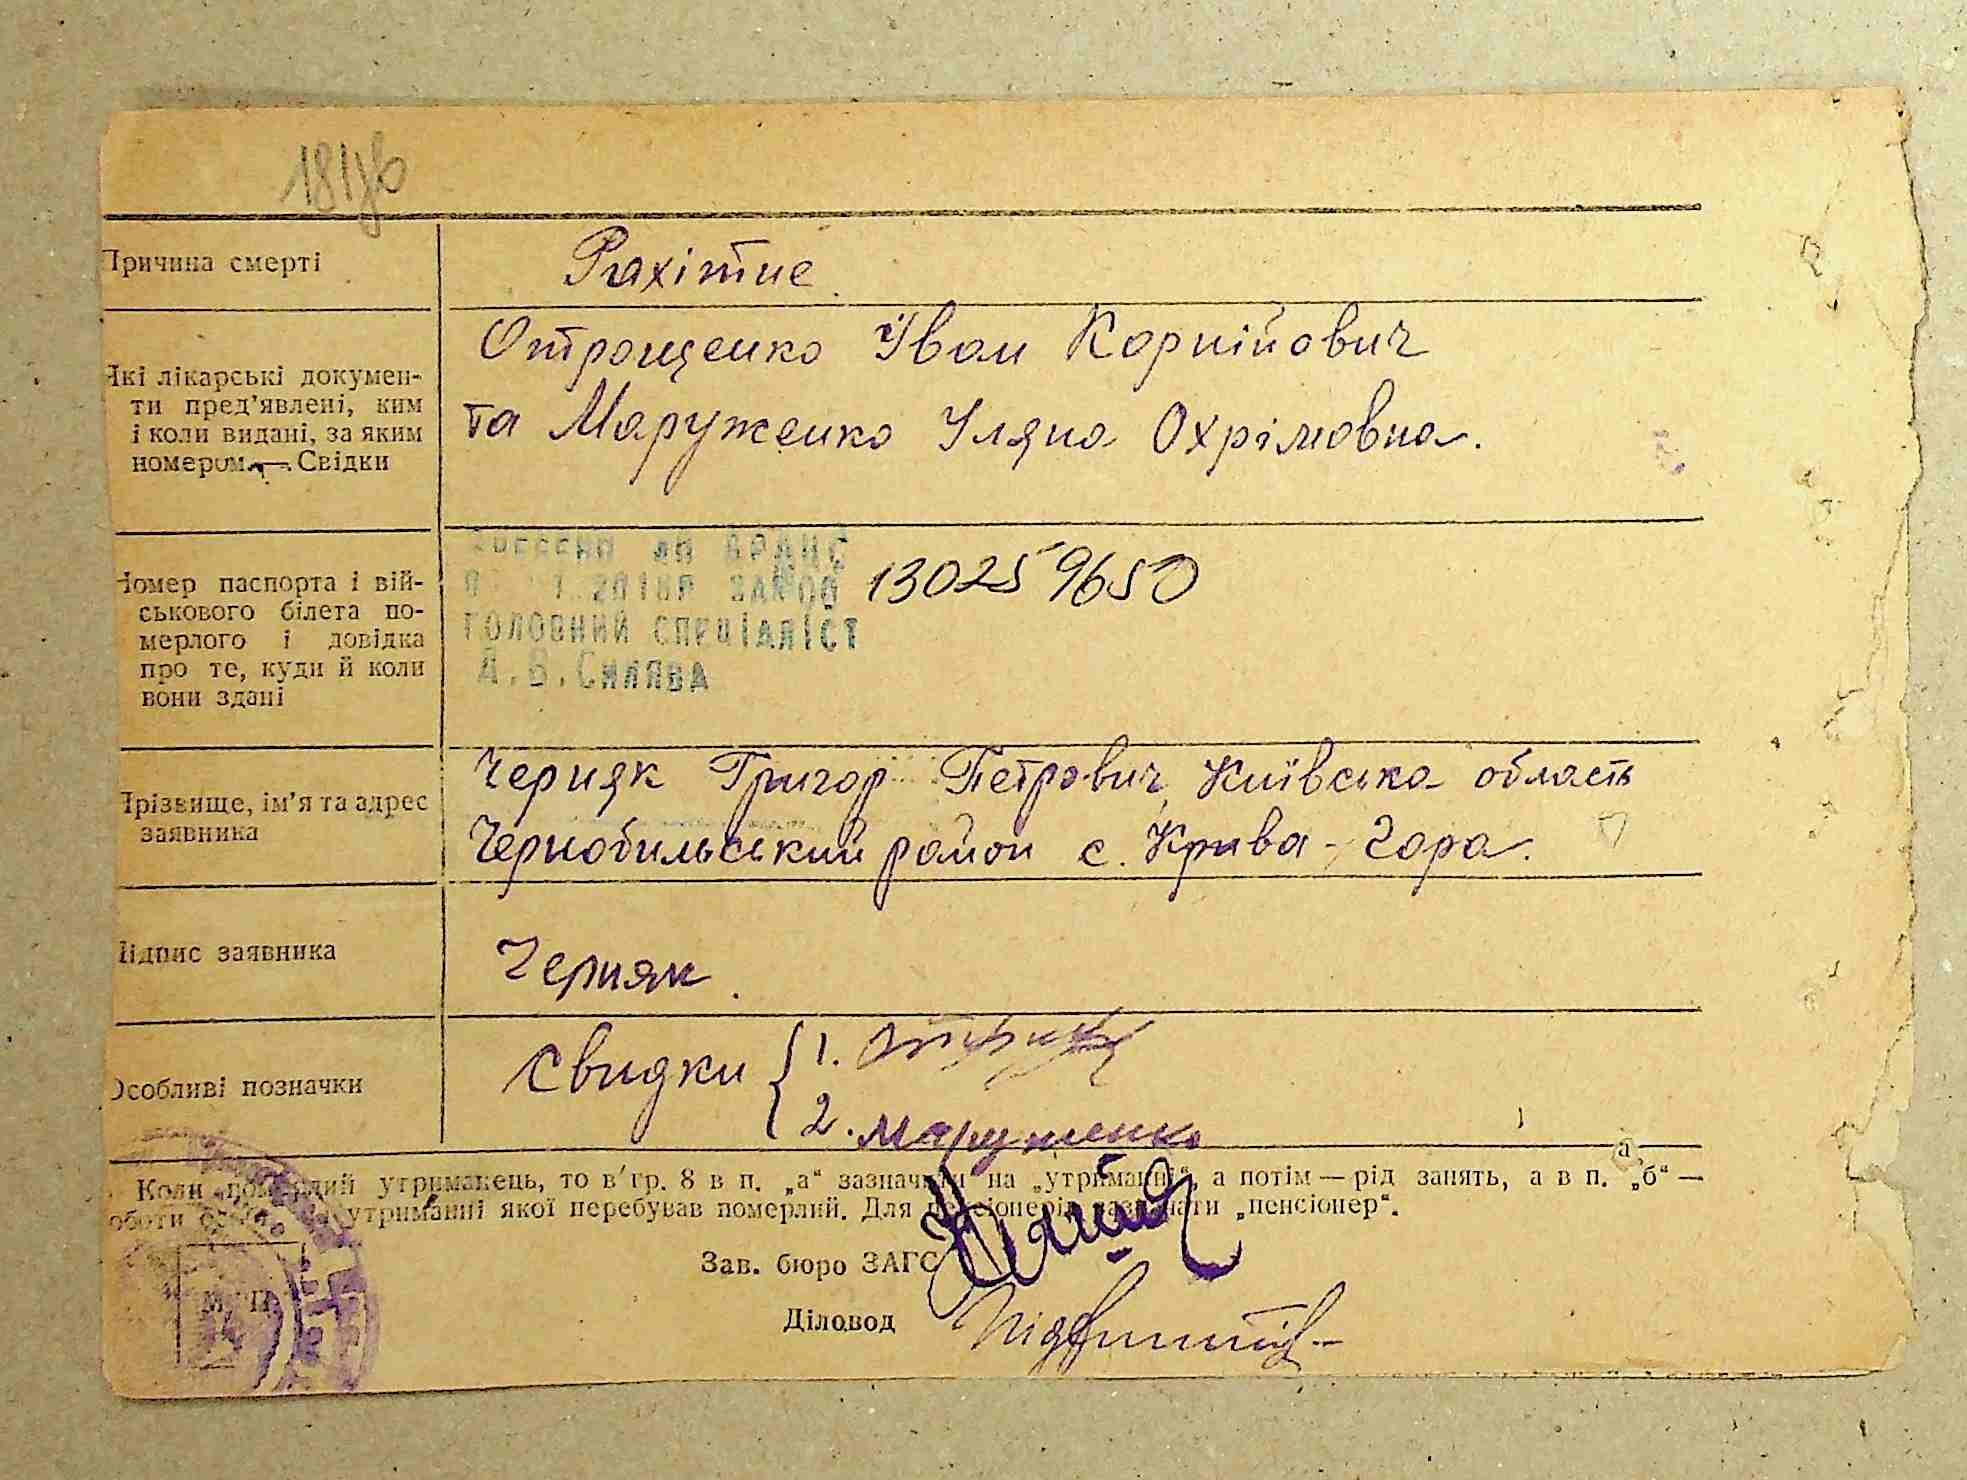 181зв
Причина смерті
Рахітис
Які лікарські докумен-
ти пред'явлені, ким
і коли видані, за яким
номером. — Свідки
Отрощенко Іван Корнійович
та Маруженко Уляна Охрімовна.
Номер паспорта і вій-
ськового білета по-
мерлого і довідка
про те, куди й коли
вони здані
ДРАЦС
130259650
ГОЛОВНИЙ СПЕЦІАЛІСТ
А.В.Силява
Прізвище, ім'я та адрес
заявника
Черняк Григор Петрович, Київська область
Чернобильський район с. Крива-Гора.
Підпис заявника
Черняк.
Особливі позначки
Свидки
1.
2. Маруженко
Коли померлий утриманець, то в гр. 8 в п. „а“ зазначити на „утриманні“, а потім — рід занять, а в п. „б“ —
роботи утриманні якої перебував померлий. Для пенсіонерів зазначати „пенсіонер“.
Зав. бюро ЗАГС
Діловод
М. П.